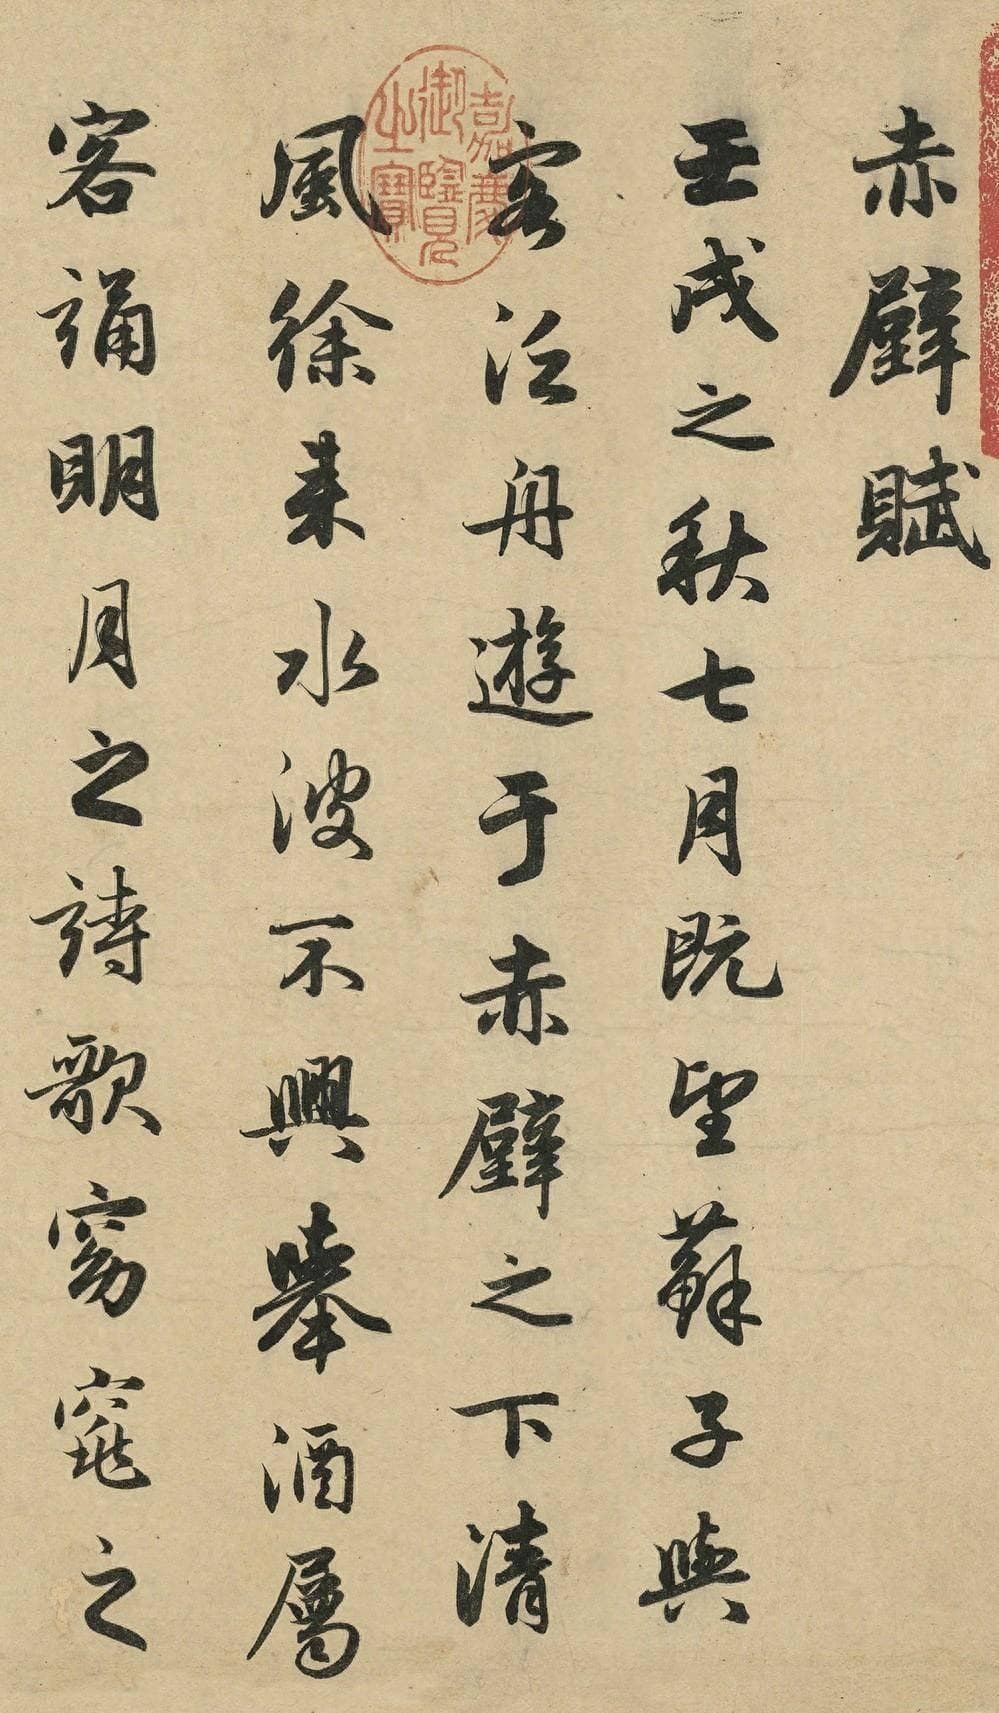 赤壁賦
壬戌之秋七月既望蘇子與
客泛舟遊于赤壁之下清
風徐來水波不興舉酒屬
客誦明月之詩歌窈窕之
嘉慶
御覽
之寶